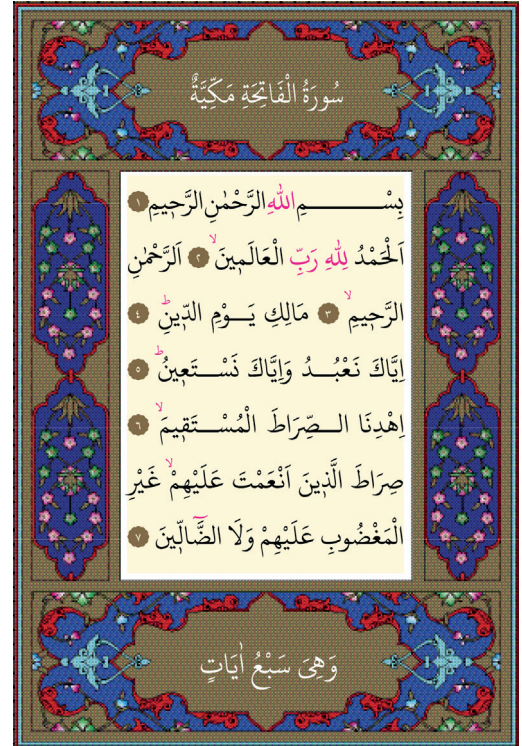 سُورَةُ الْفَاتِحَةِ مَكِّيَّةٌ
بِسْمِ اللّٰهِ الرَّحْمٰنِ الرَّحٖيمِ ١
اَلْحَمْدُ لِلّٰهِ رَبِّ الْعَالَمٖينَۙ ٢ اَلرَّحْمٰنِ
الرَّحٖيمِۙ ٣ مَالِكِ يَوْمِ الدّٖينِؕ ٤
اِيَّاكَ نَعْبُدُ وَاِيَّاكَ نَسْتَعٖينُؕ ٥
اِهْدِنَا الصِّرَاطَ الْمُسْتَقٖيمَۙ ٦
صِرَاطَ الَّذٖينَ اَنْعَمْتَ عَلَيْهِمْۙ غَيْرِ
الْمَغْضُوبِ عَلَيْهِمْ وَلَا الضَّٓالّٖينَ ٧
وَهِىَ سَبْعُ اٰيَاتٍ